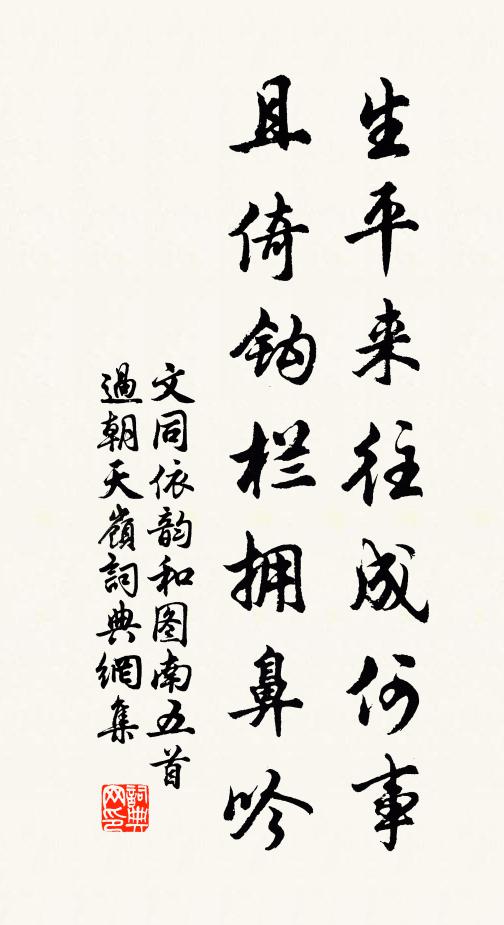 生平来往成何事
且倚钩栏拥鼻吟
文同依韵和图南五首
過朝天嶺詞典網集
詞典
网印